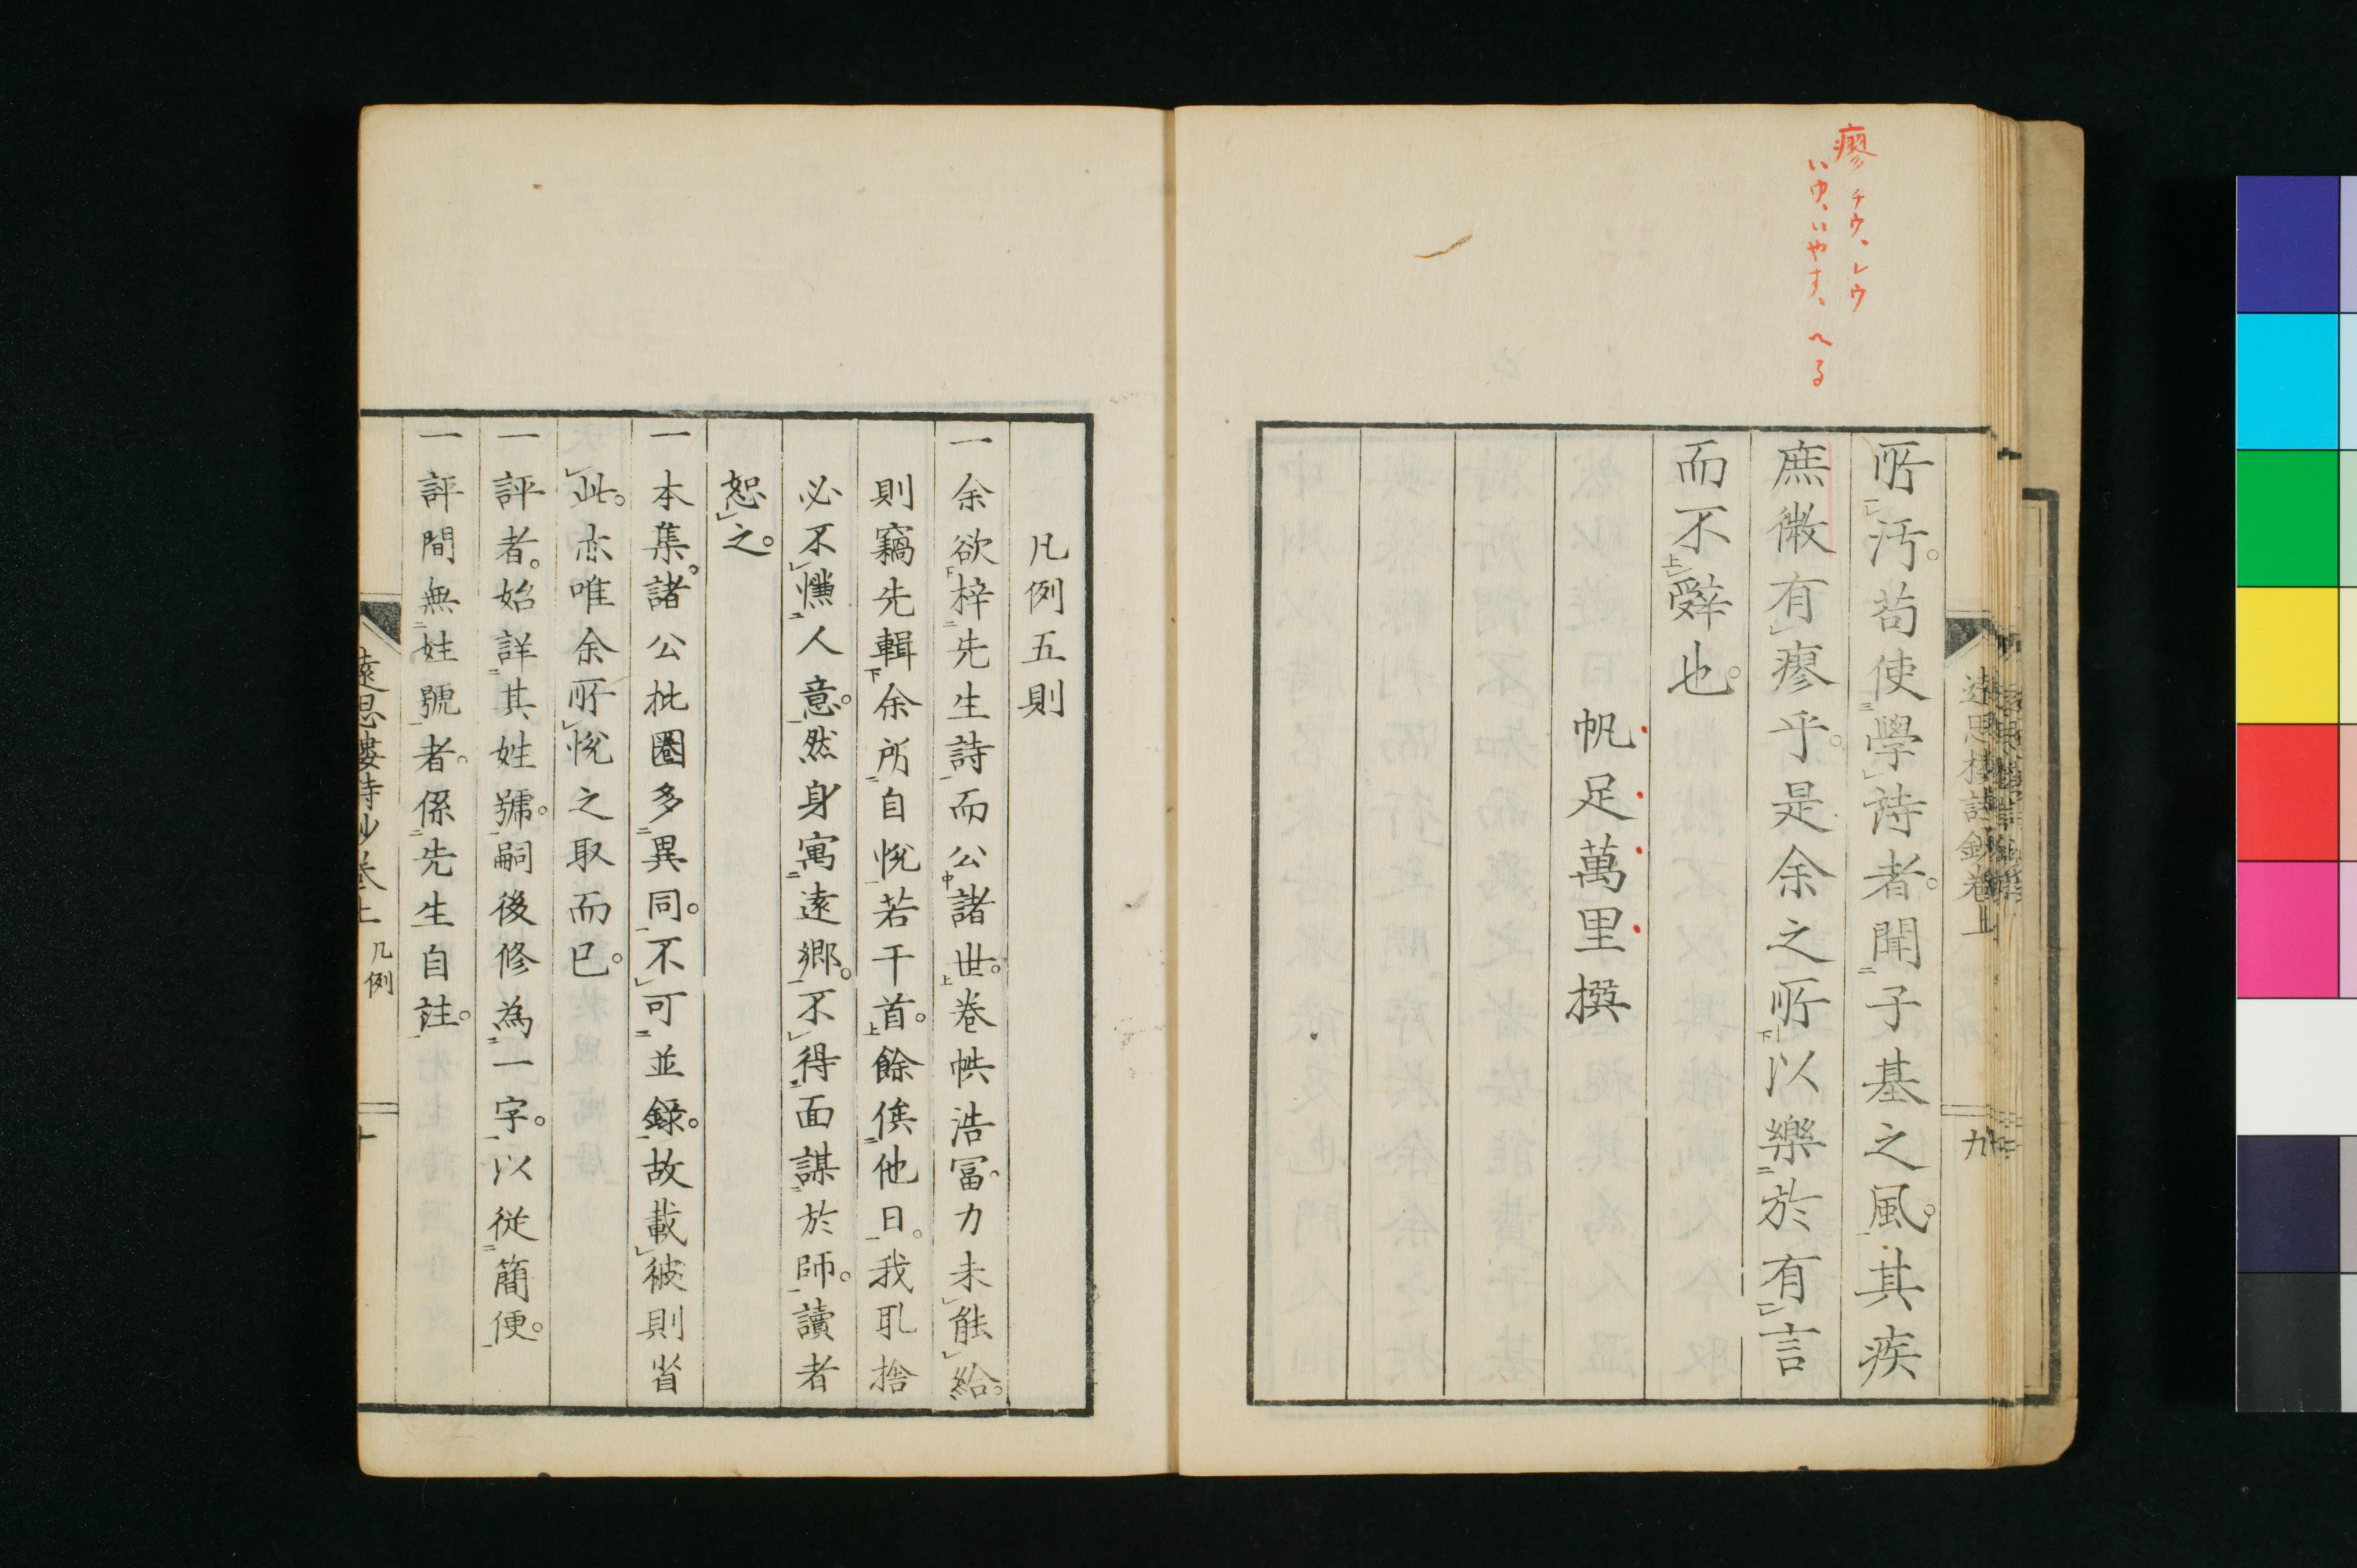 瘳 チウ、レウ
いゆ、いやす、へる
所汚。苟使學詩者。聞子基之風。其疾
庶微有瘳乎。是余之所以樂於有言
而不辭也。
帆足萬里撰
遠思樓詩鈔卷上
九
凡例五則
一余欲梓先生詩而公諸世。卷帙浩冨。力未能給。
則竊先輯余所自悅若干首。餘俟他日。我取捨
必不慊人意。然身寓遠鄉。不得面謀於師。讀者
恕之。
一本集。諸公批圈多異同。不可並錄。故載彼則省
此。亦唯余所悅之取而已。
一評者。始詳其姓號。嗣後修為一字。以從簡便。
一評間無姓號者。係先生自註。
遠思樓詩鈔卷上
凡例
十